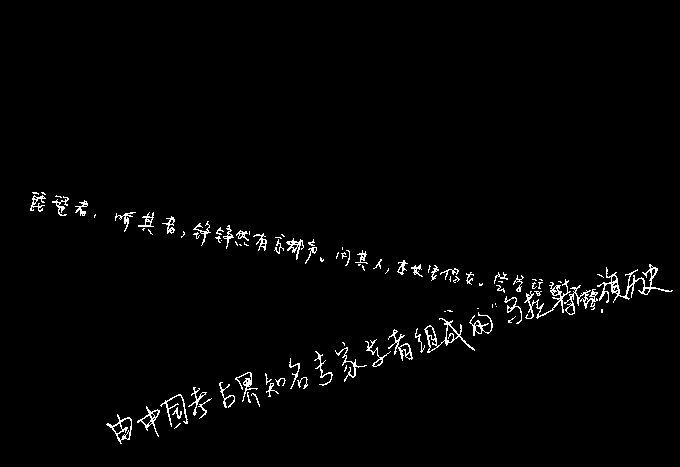 琵琶者，听其音，铮铮然有京都声。问其人，本长安倡女。尝学琵琶
由中国考古界知名专家学者组成的“乌拉特前旗历史